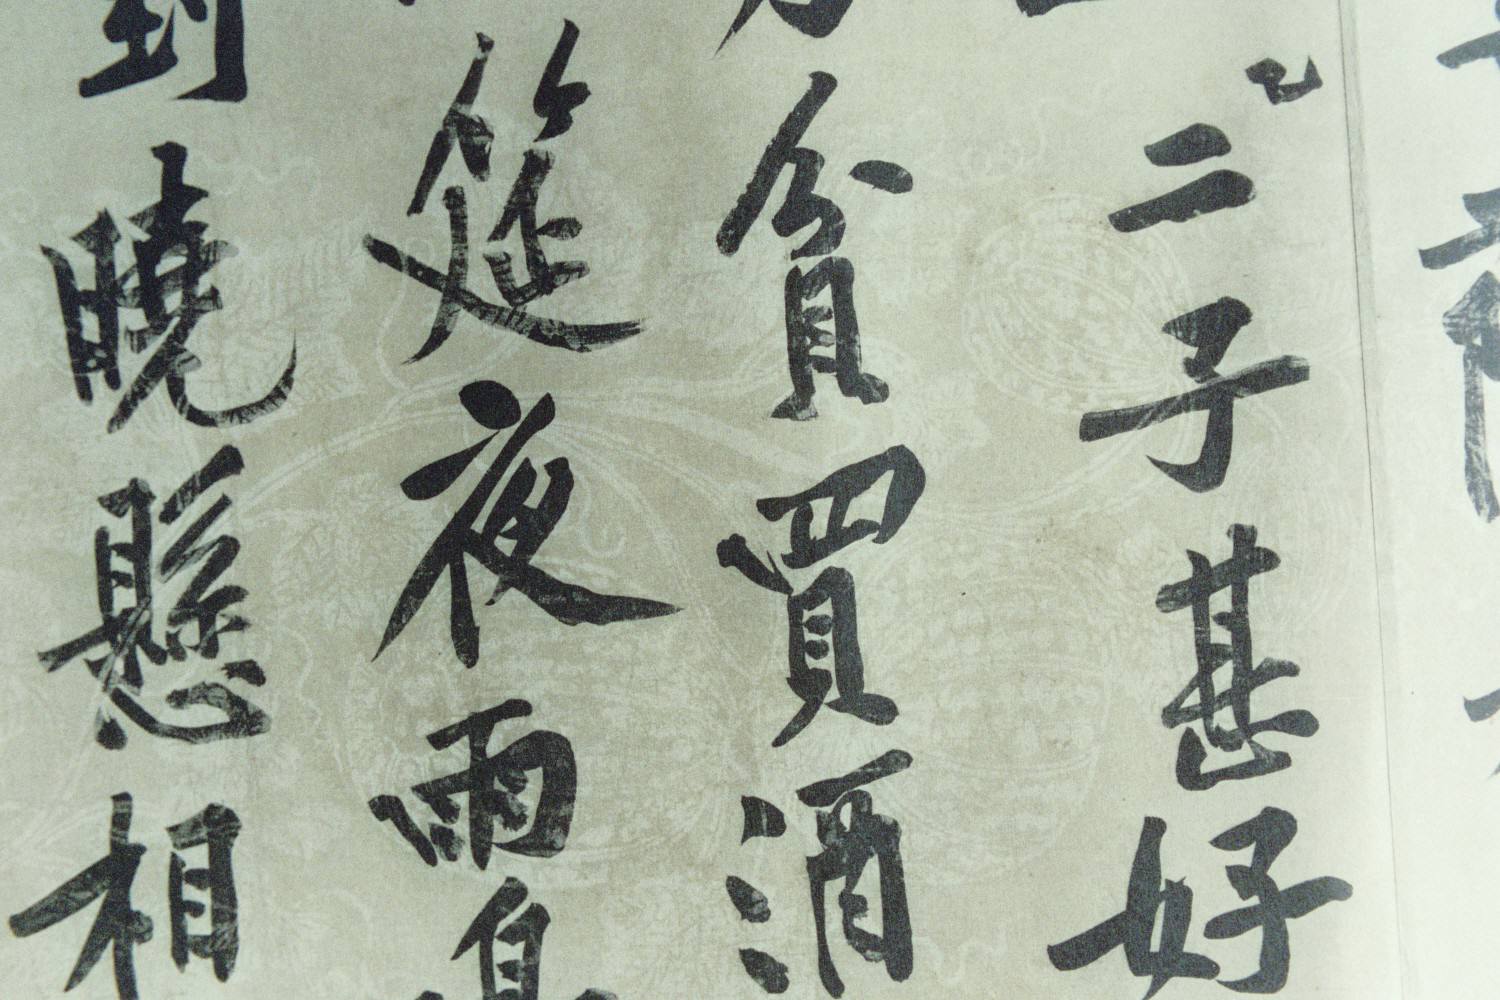 三子甚好
力貧買酒
筵夜雨
到曉懸相